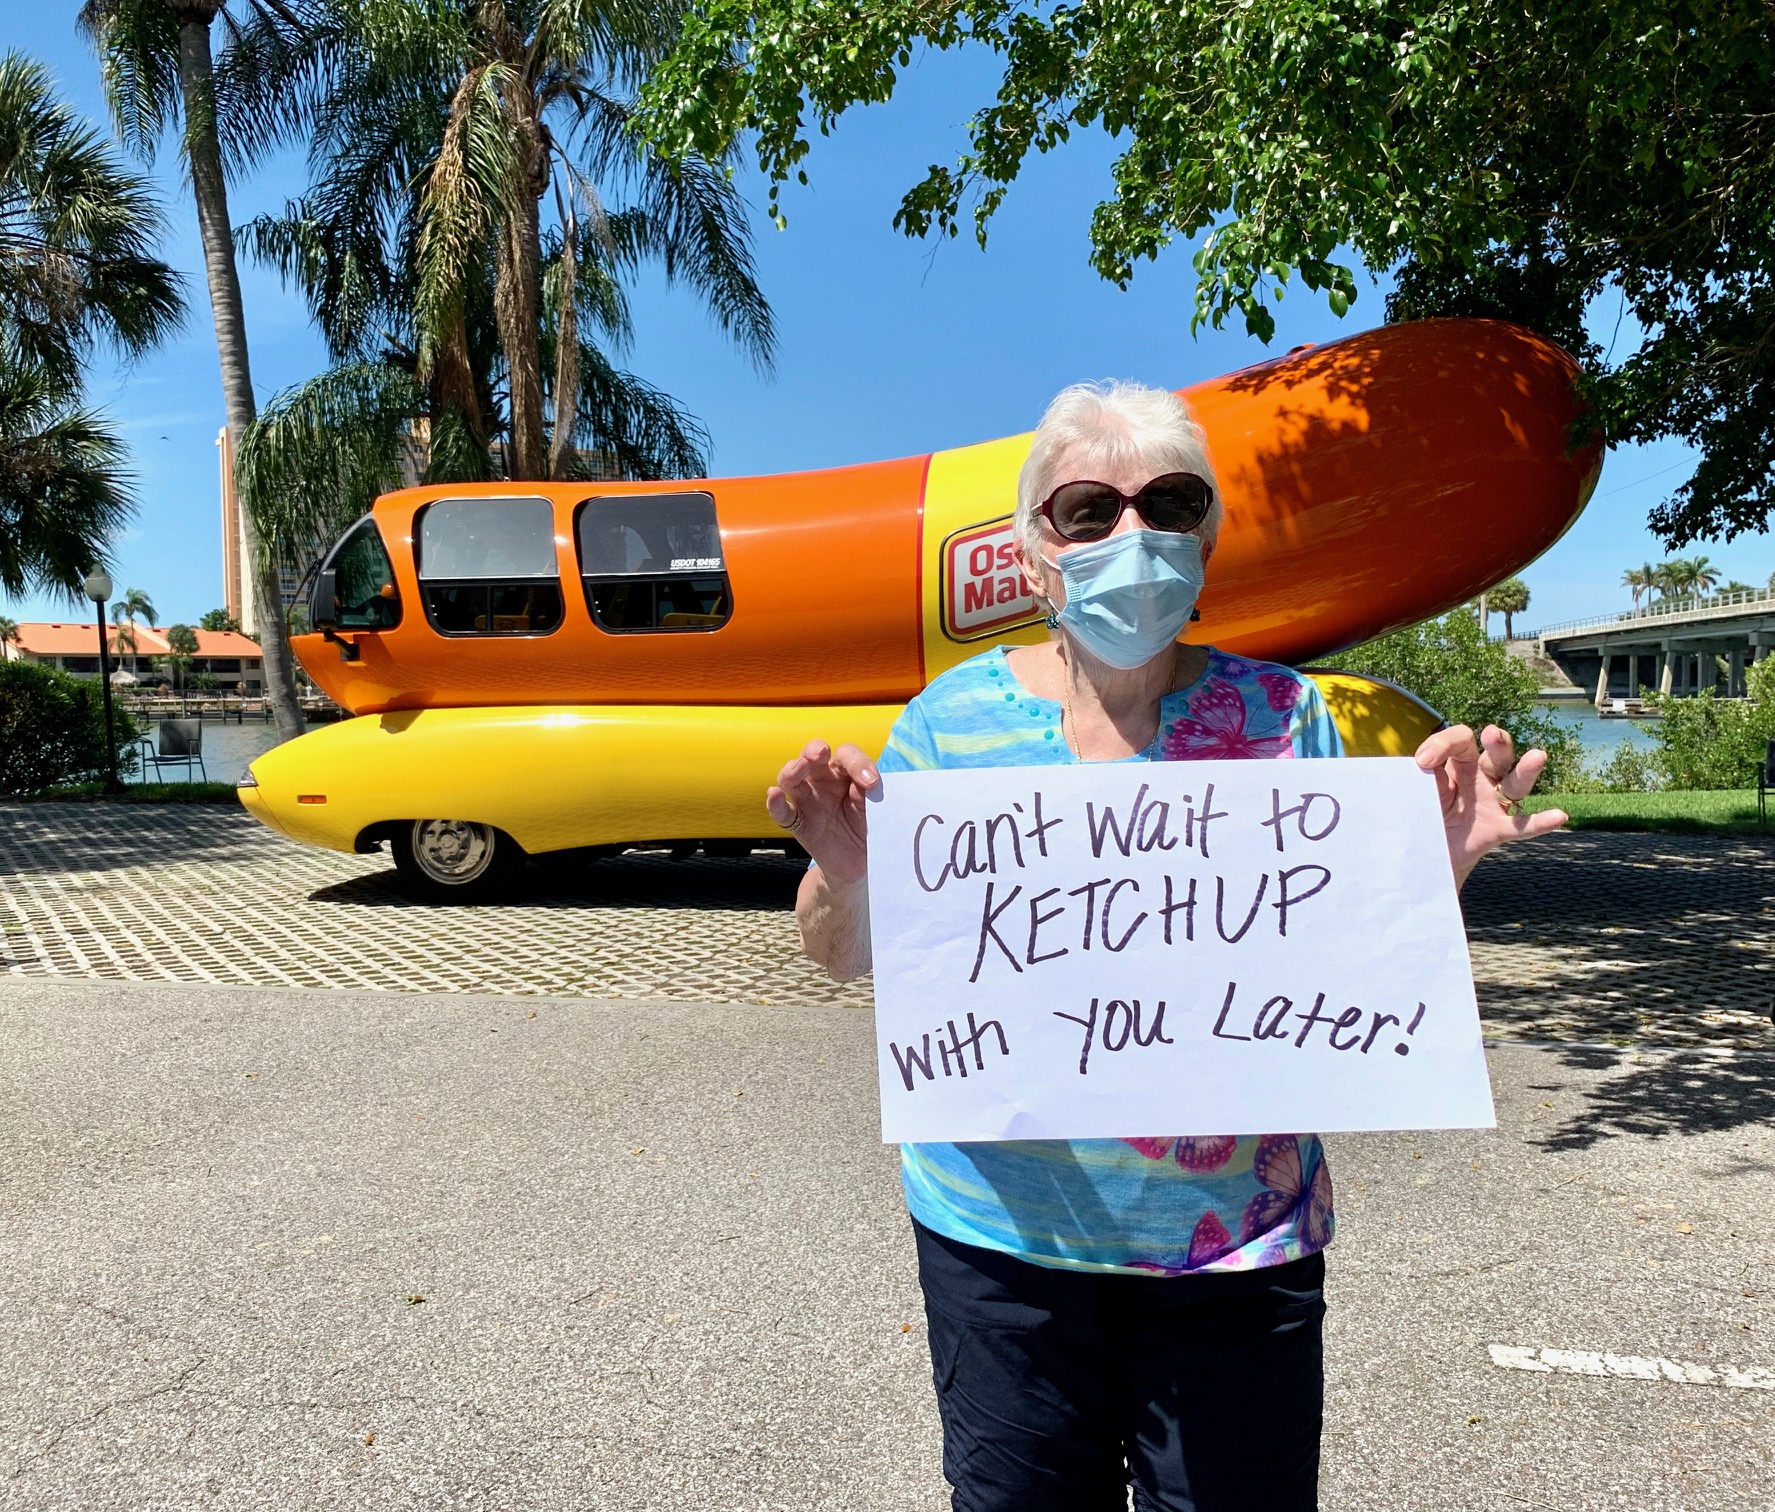 USDOT 104165
Os
Ma
Can't wait to
KETCHUP
with you Later!